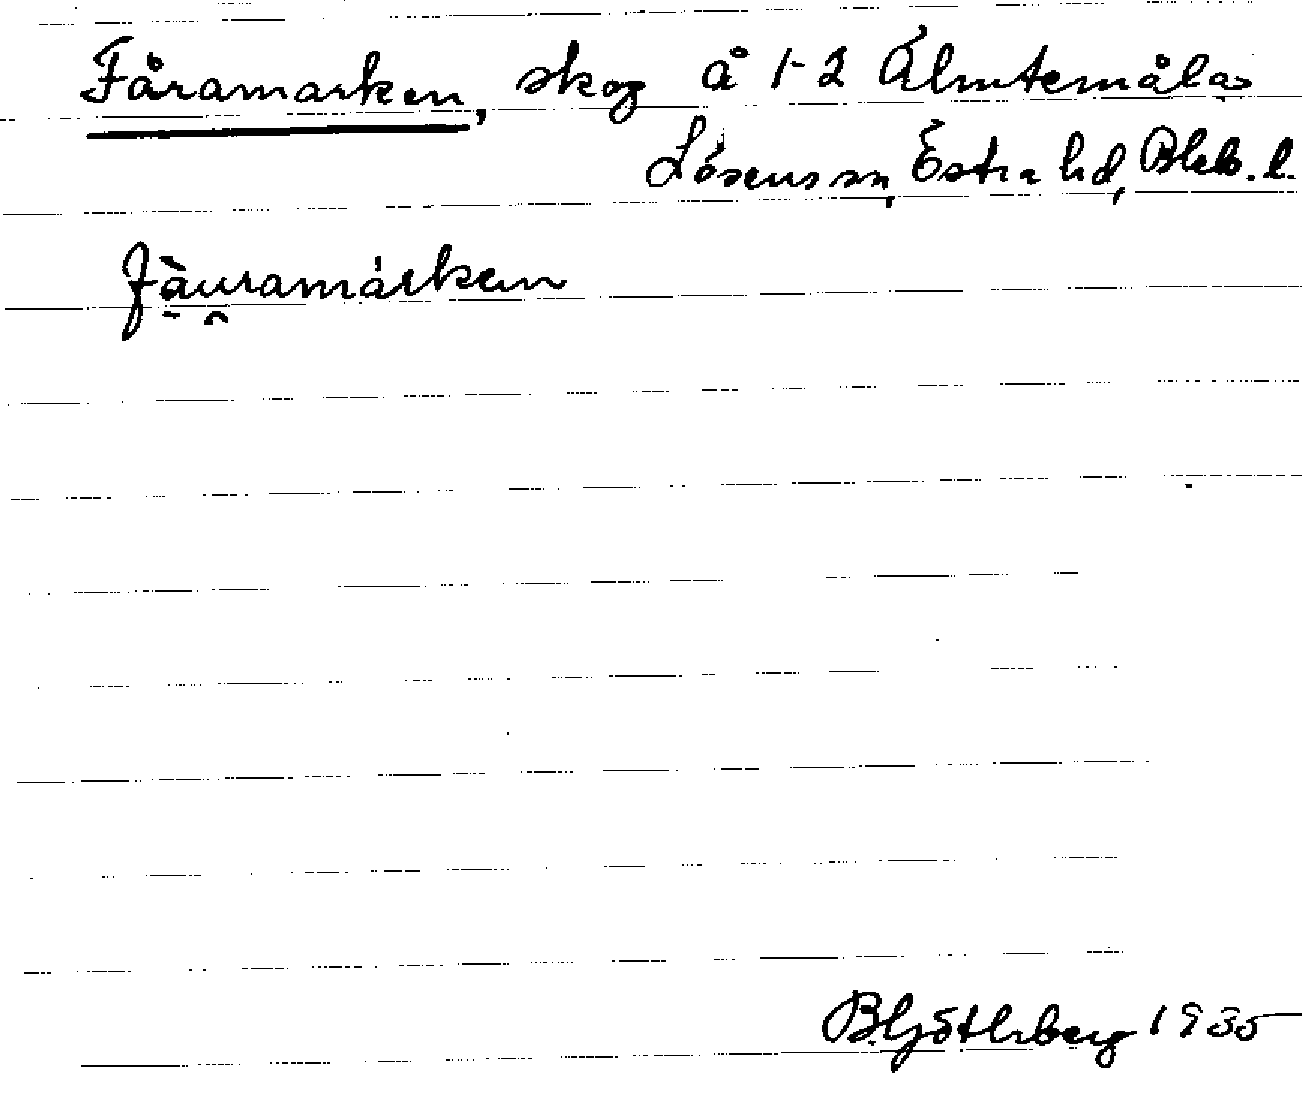 Fåramarken, skog å 1-2 Älmtemåla
Lösens sn, Östra hd, Blek. l.
fàuramárken
B. Götlerberg 1935